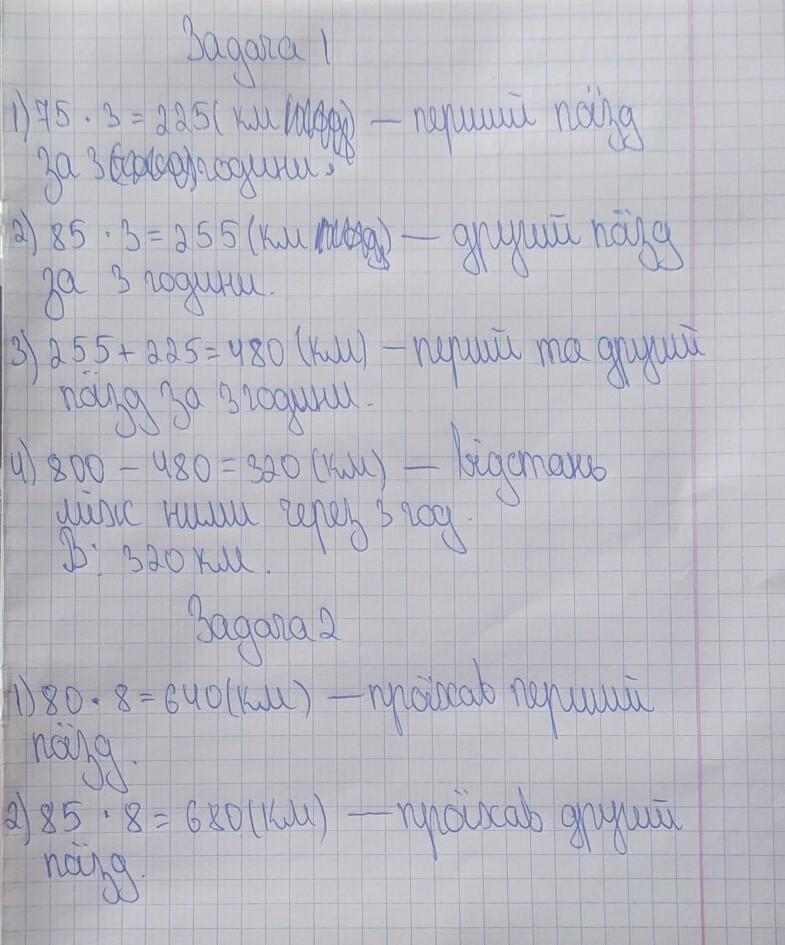 Задача 1
1) 75 · 3 = 225 (км) — перший поїзд
за 3 години.
2) 85 · 3 = 255 (км) — другий поїзд
за 3 години.
3) 255 + 225 = 480 (км) — перший та другий
поїзд за 3 години.
4) 800 - 480 = 320 (км) — відстань
між ними через 3 год.
В: 320 км.
Задача 2
1) 80 · 8 = 640 (км) — проїхав перший
поїзд.
2) 85 · 8 = 680 (км) — проїхав другий
поїзд.